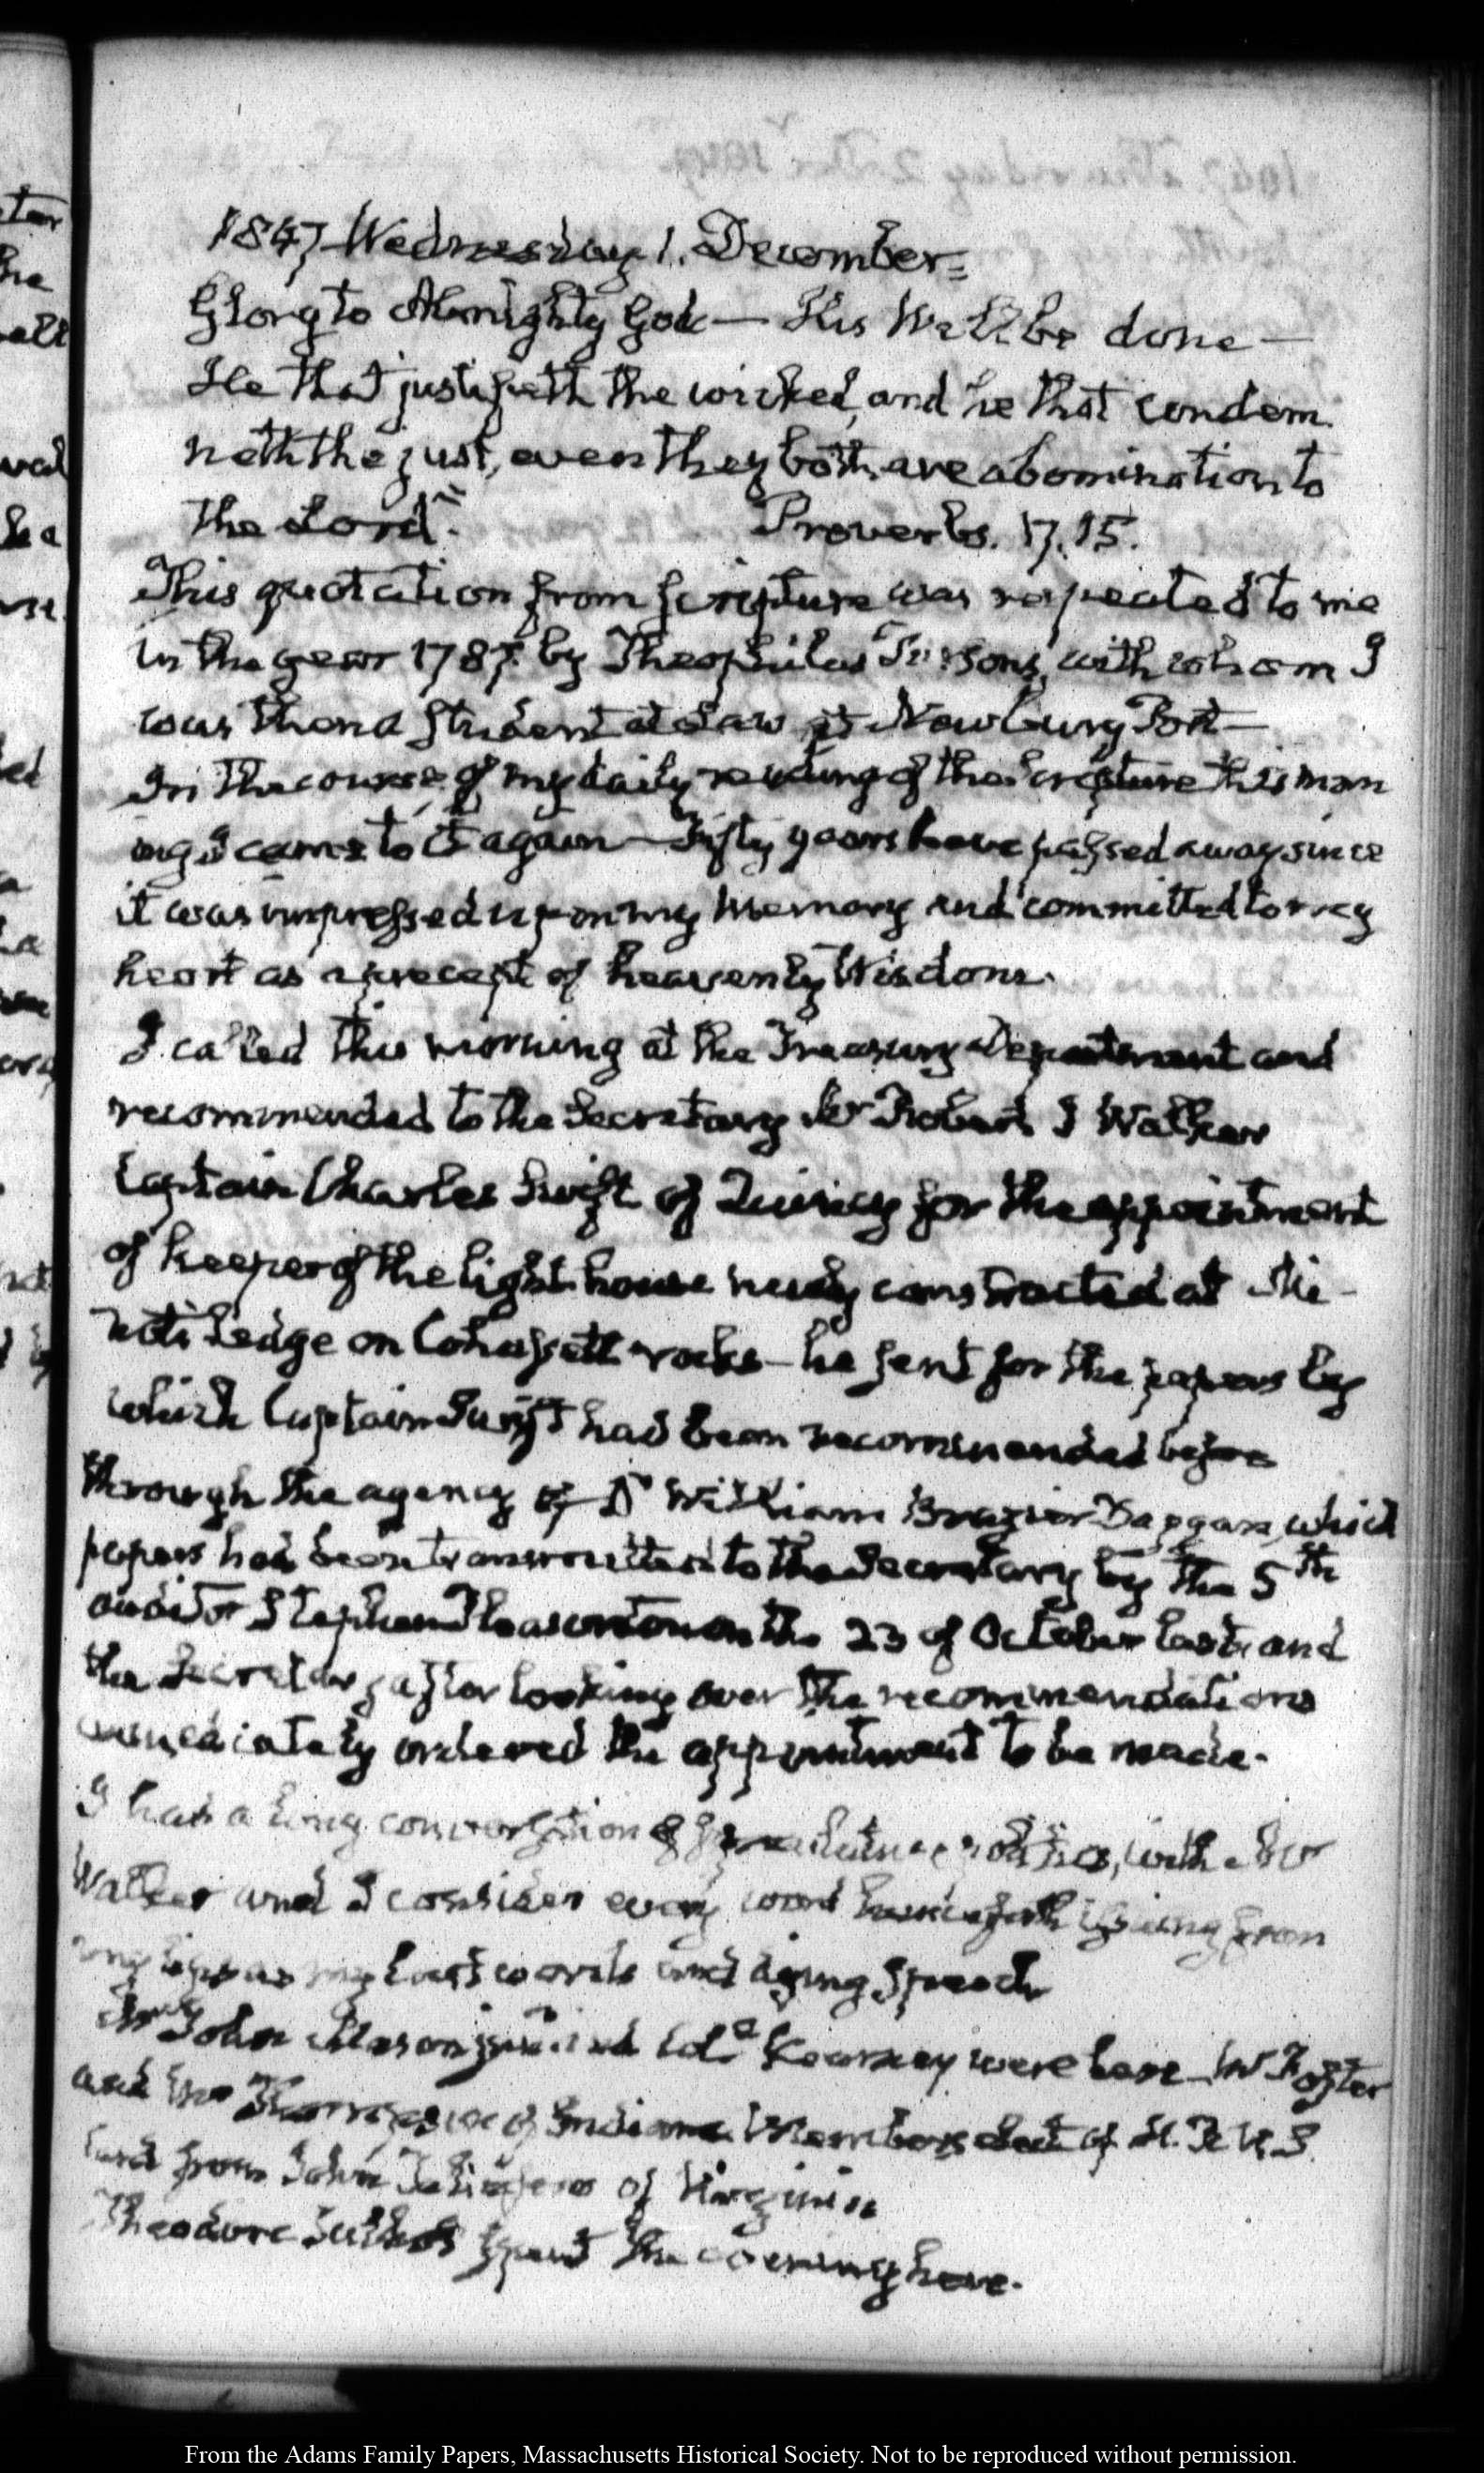 1847 Wednesday 1. December.
Glory to Almighty God — His Will be done —
He that justifieth the wicked, and he that condem.
neth the just, even they both are abomination to
the Lord". Proverbs. 17. 15.
This quotation from scripture was repeated to me
in the year 1787. by Theophilus Parsons, with whom I
was then a student at Law at Newbury Port —
In the course of my daily reading of the Scripture this morn
ing I came to it again — Fifty years have passed away since
it was impressed upon my memory and committed to my
heart as a precept of heavenly Wisdom.
I called this morning at the Treasury Department and
recommended to the Secretary Mr Robert J Walker
Captain Charles Swift of Quincy for the appointment
of keeper of the light house newly constructed at Mi-
nots Ledge on Cohassett rocks — he sent for the papers by
which Captain Swift had been recommended before
through the agency of Dr William Brazier Duggan, which
papers had been transmitted to the Secretary by the 5th
auditor Stephen Pleasonton on the 23 of October last, and
the Secretary after looking over the recommendations
immediately ordered the appointment to be made.
I had a long conversation of politics, with Mr
Walker and I consider every word henceforth issuing from
my lips as my last words and dying speech
Mrs John Mason junr and Kearney were here — Mr
and Mr Thompson of Indiana Members elect of H. R. U.S.
Card from John Taliaferro of Virginia
Theodore spent the evening here.
From the Adams Family Papers, Massachusetts Historical Society. Not to be reproduced without permission.